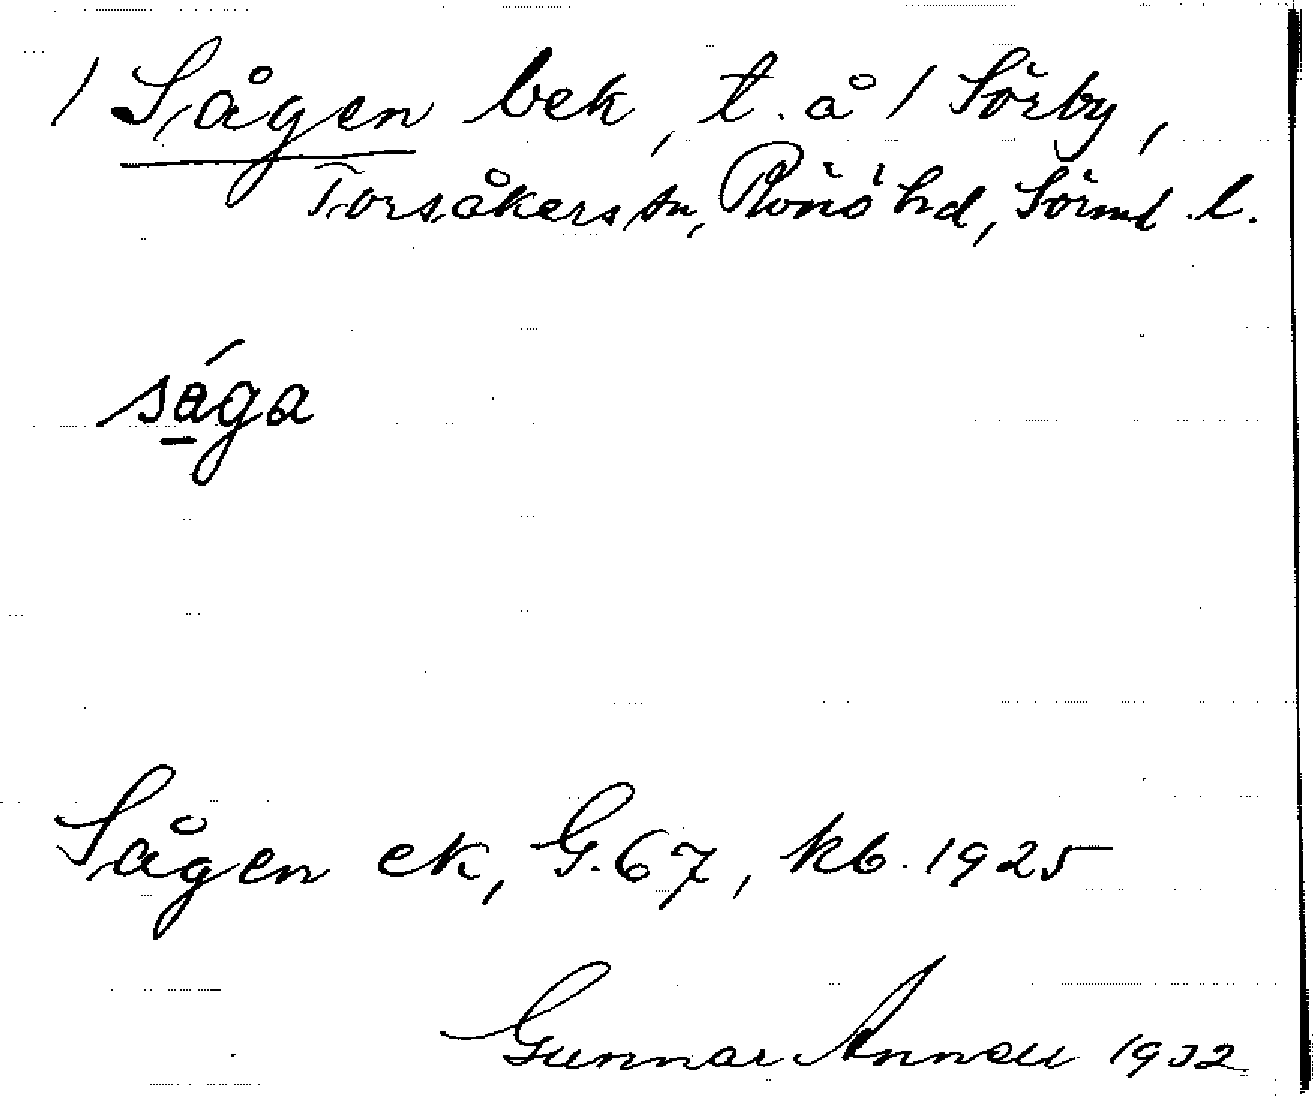 1 Sågen bek, t. å 1 Sörby,
Torsåkers sn, Rönö hd, Sörml. l.
såga
Sågen ek, G.67, kb. 1925
Gunnar 1932